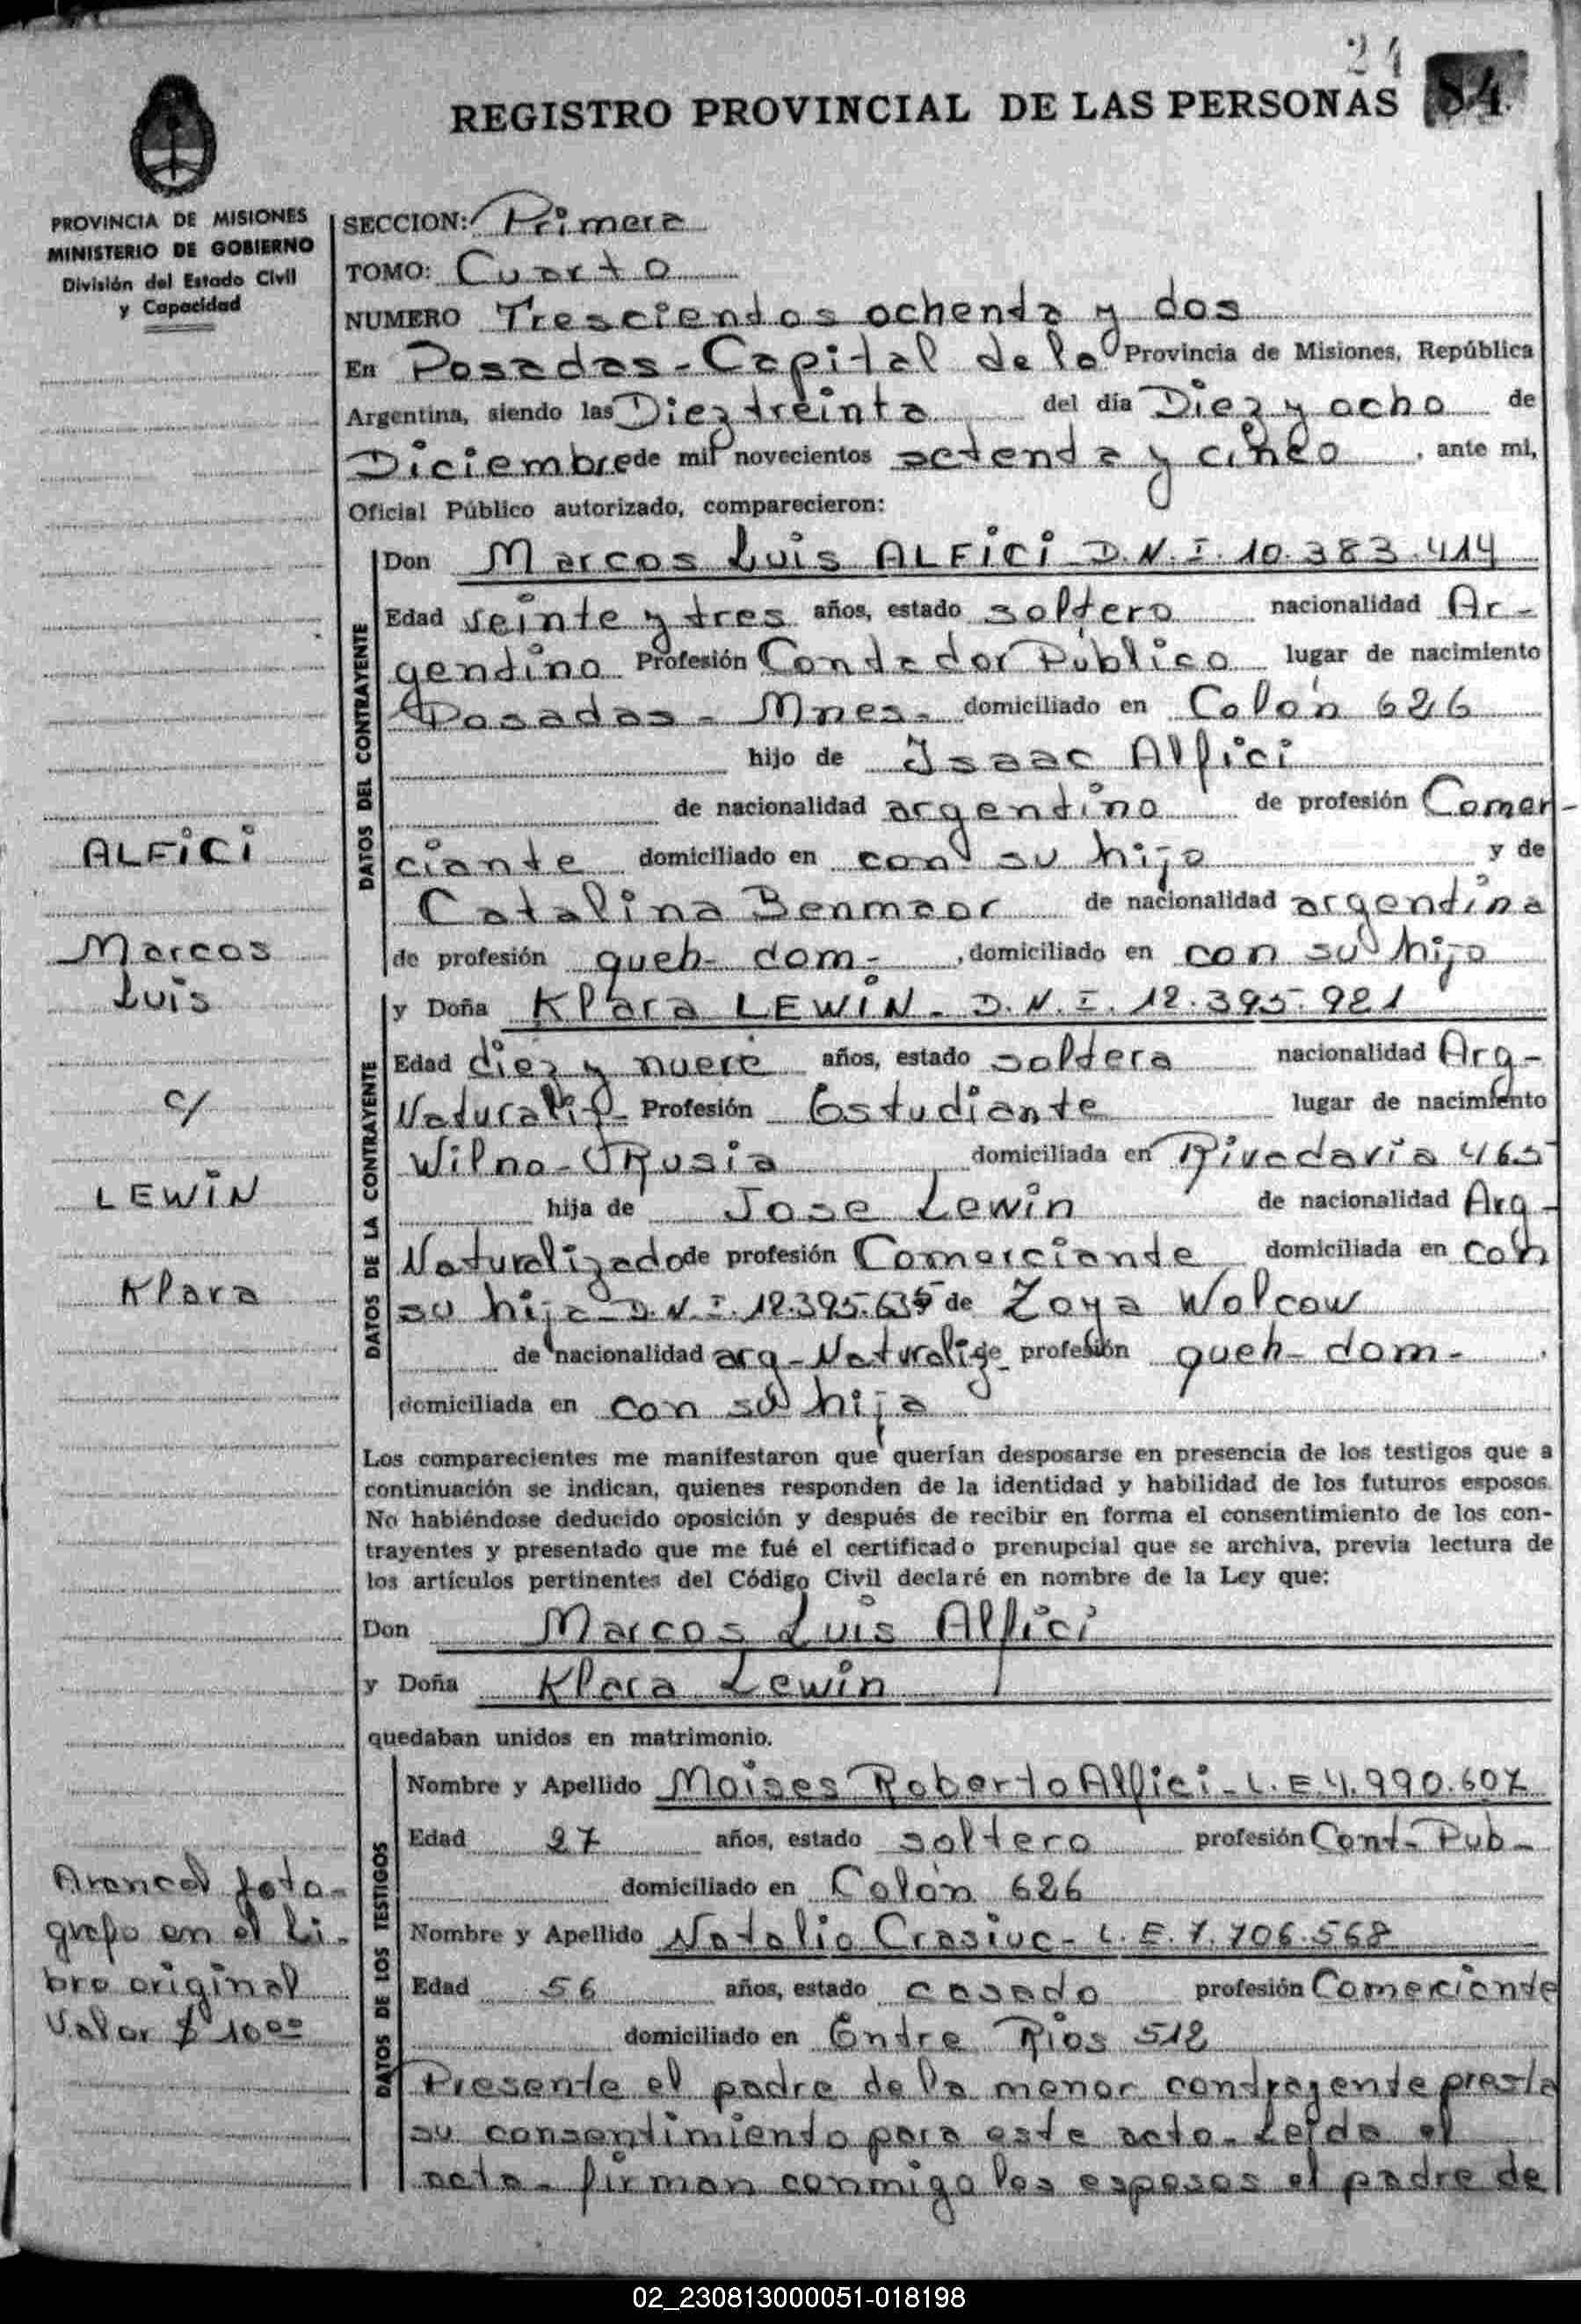 24
84
REGISTRO PROVINCIAL DE LAS PERSONAS
PROVINCIA DE MISIONES
MINISTERIO DE GOBIERNO
División del Estado Civil
y Capacidad
SECCION: Primera
TOMO: Cuarto
NUMERO Tresciendos ochenta y dos
En Posadas - Capital de la Provincia de Misiones, República
Argentina, siendo las Diez treinta del día Diez y ocho de
Diciembre de mil novecientos setenta y cinco, ante mi,
Oficial Público autorizado, comparecieron:
DATOS DEL CONTRAYENTE
Don Marcos Luis ALFICI D.N.I. 10.383.414
Edad veinte y tres años, estado soltero nacionalidad Ar-
gentino Profesión Contador Público lugar de nacimiento
Posadas - Mnes. domiciliado en Colón 626
hijo de Isaac Alfici
de nacionalidad argentino de profesión Comer-
ciante domiciliado en con su hijo y de
Catalina Benmaor de nacionalidad argentina
de profesión queh- dom-, domiciliado en con su hijo
DATOS DE LA CONTRAYENTE
y Doña Klara LEWIN - D.N.I. 12.395.921
Edad diez y nueve años, estado soltera nacionalidad Arg-
Naturaliz- Profesión Estudiante lugar de nacimiento
Wilno - Rusia domiciliada en Rivadavia 465
hija de Jose Lewin de nacionalidad Arg-
Naturalizado de profesión Comerciante domiciliada en con
su hija - D.N.I. 12.395.635 de Zoya Wolcow
de nacionalidad arg - Naturaliz de profesión queh- dom-.
domiciliada en con su hija
Los comparecientes me manifestaron que querían desposarse en presencia de los testigos que a
continuación se indican, quienes responden de la identidad y habilidad de los futuros esposos.
No habiéndose deducido oposición y después de recibir en forma el consentimiento de los con-
trayentes y presentado que me fué el certificado prenupcial que se archiva, previa lectura de
los artículos pertinentes del Código Civil declaré en nombre de la Ley que:
Don Marcos Luis Alfici
y Doña Klara Lewin
quedaban unidos en matrimonio.
DATOS DE LOS TESTIGOS
Nombre y Apellido Moises Roberto Alfici - L.E 4.990.607
Edad 27 años, estado soltero profesión Cont- Pub-
domiciliado en Colón 626
Nombre y Apellido Natalio Crasiuc - L.E. 7.706.568
Edad 56 años, estado casado profesión Comerciante
domiciliado en Entre Rios 512
Presente el padre de la menor contrayente presta
su consentimiento para este acto - Leida el
acta - firman conmigo los esposos el padre de
ALFICI
Marcos
Luis
c/
LEWIN
Klara
Arancel foto-
grafo en el Li-
bro original
Valor $ 10 00
02_230813000051-018198